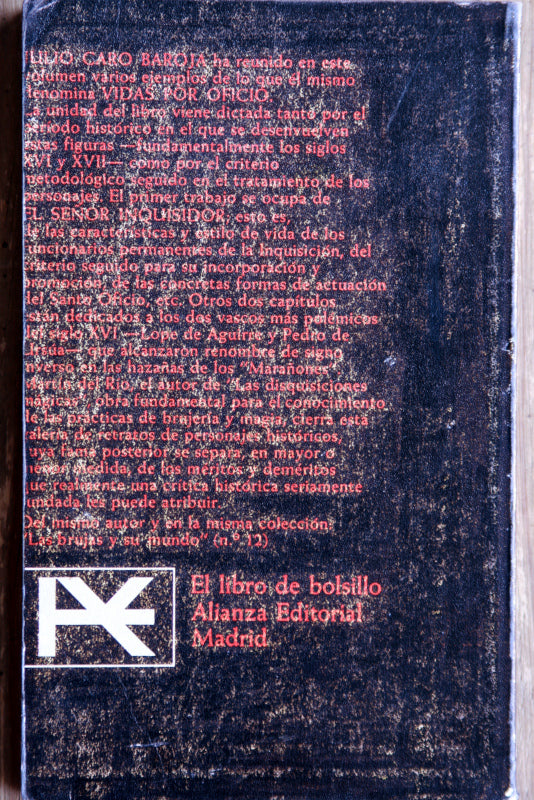 JULIO CARO BAROJA ha reunido en este
volumen varios ejemplos de lo que el mismo
denomina VIDAS POR OFICIO.
La unidad del libro viene dictada tanto por el
período histórico en el que se desenvuelven
estas figuras —fundamentalmente los siglos
XVI y XVII— como por el criterio
metodológico seguido en el tratamiento de los
personajes. El primer trabajo se ocupa de
EL SEÑOR INQUISIDOR, esto es,
de las características y estilo de vida de los
funcionarios permanentes de la Inquisición, del
criterio seguido para su incorporación y
promoción, de las concretas formas de actuación
del Santo Oficio, etc. Otros dos capítulos
están dedicados a los dos vascos más polémicos
del siglo XVI —Lope de Aguirre y Pedro de
Ursúa— que alcanzaron renombre de signo
inverso en las hazañas de los "Marañones".
Martín del Río, el autor de "Las disquisiciones
mágicas", obra fundamental para el conocimiento
de las prácticas de brujería y magia, cierra esta
galería de retratos de personajes históricos,
cuya fama posterior se separa, en mayor o
menor medida, de los méritos y deméritos
que realmente una crítica histórica seriamente
fundada les puede atribuir.
Del mismo autor y en la misma colección:
"Las brujas y su mundo" (n.º 12)
El libro de bolsillo
Alianza Editorial
Madrid